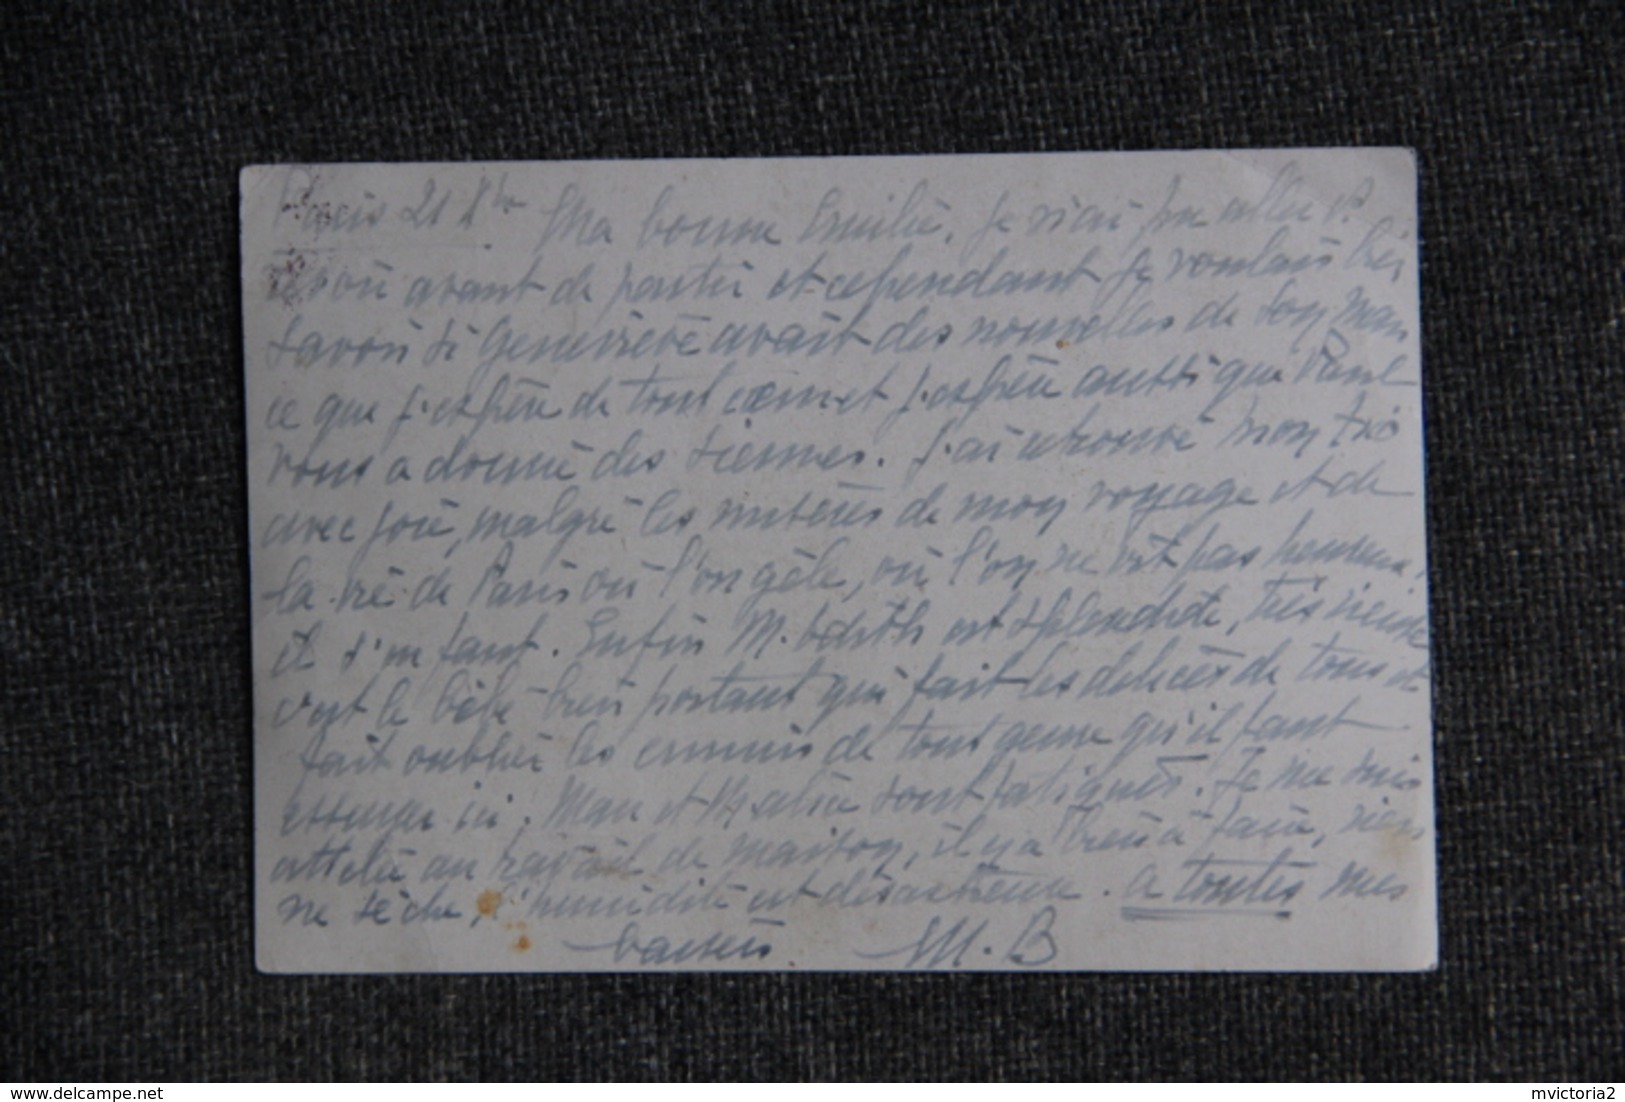 Paris 21 Xbre Ma bonne Emilie, Je n'ai pu aller te
voir avant de partir et cependant je voulais bien
savoir si Geneviève avait des nouvelles de son mari
ce que j'espère de tout coeur et j'espère aussi que Paul
vous a donné des siennes. J'ai retrouvé mon trio
avec joie, malgré les misères de mon voyage et de
la vie de Paris où l'on gèle, où l'on ne vit pas heureux,
il s'en faut. Enfin M. est splendide, très
c'est le bébé bien portant qui fait les délices de tous et
fait oublier les ennuis de tout genre qu'il faut
essuyer ici. Man et sont fatigués. Je me suis
attelée au travail de maison, il y a bien à faire, rien
ne sèche, l'humidité est désastreuse. à toutes mes
baisers M. B
delcampe.net
mvictoria2